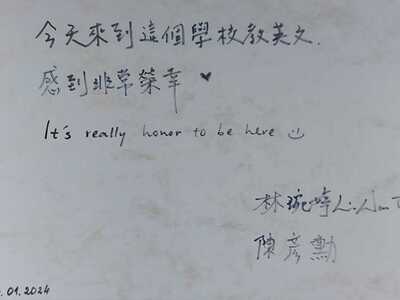 今天來到這個學校教英文.
感到非常榮幸 ♥
It's really honor to be here ☺
林琬婷
陳彥勳
.01.2024